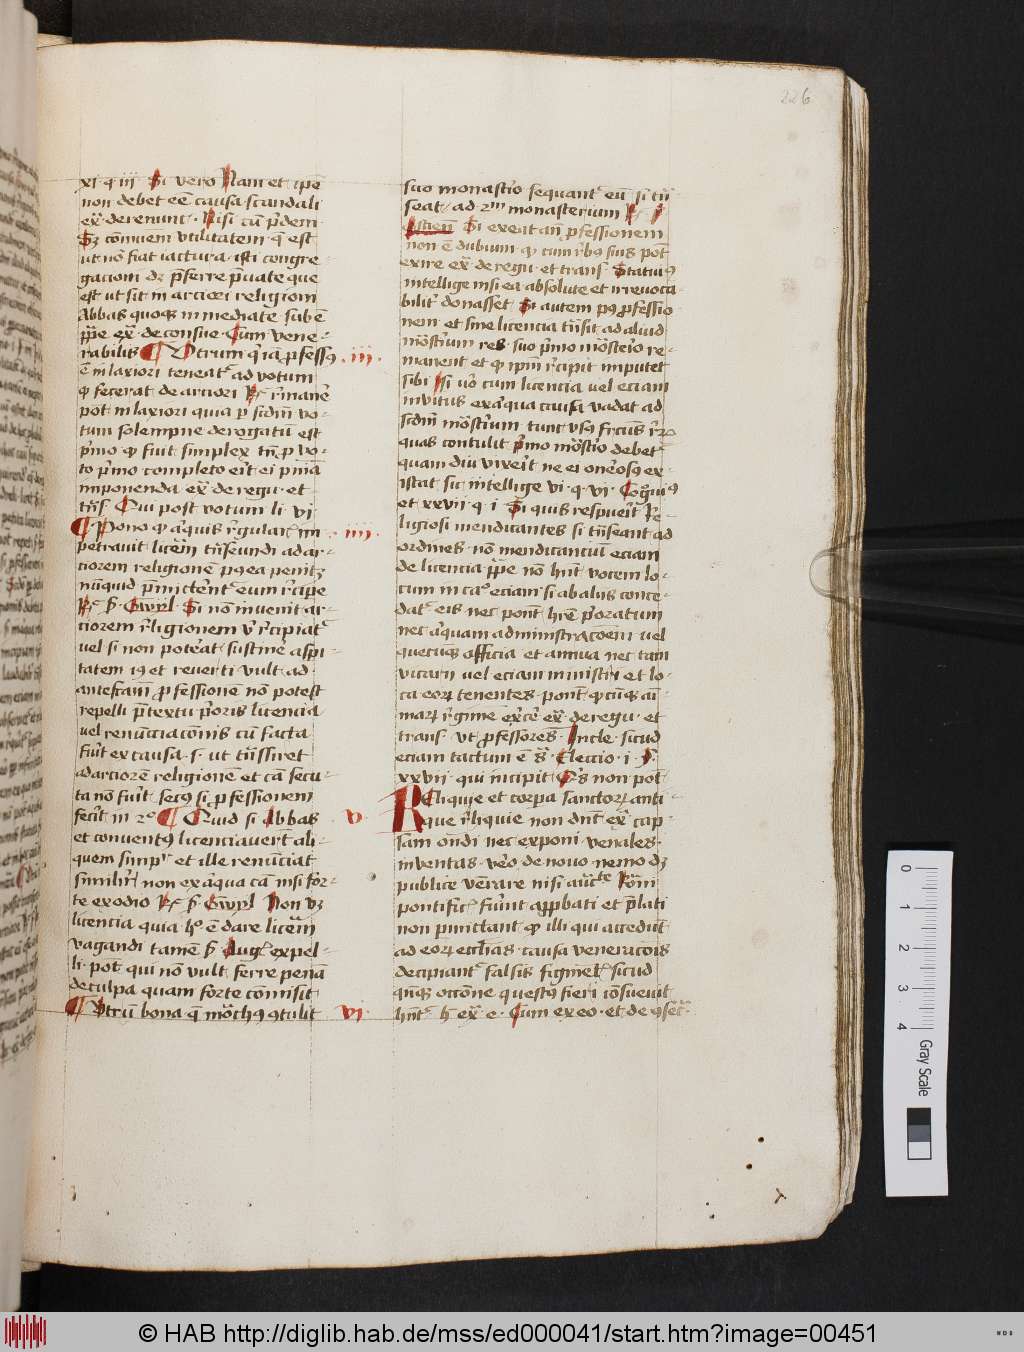 226
xi · q iii Si vero Nam et ipē
non debet eē causa scandali
ex̄ · de renunt · Nisi cū p̄dem
Sz cōmuem vtilitatem q̄ est
ut nō fiat iactura · isti congre-
gacioni dz p̄ferre p̄uate que
est ut sit in arciori religioni
Abbas quoqз inmediate sub ē
pp̄e ex̄ · de consue · Cum vene-
rabilis ¶ Vtrum q̄ iā p̄fessꝰ · iii ·
ē in laxiori teneat᷑ ad votum
q̄ fecerat de arciori R᷑ r̄manē
pōt in laxiori quia p̄ scdm̄ vo-
tum solempne derogatū est
p̄mo q̄ fuit simplex tn̄ p̄ vo-
to p̄mo completo erit ei pnīa
imponenda ex̄ de regu · et
trn̄s · Qui post votum li · vi
¶ Pono q̄ aꝰquis r̄gulari᷑ im- · iiii ·
petrauit licēm trn̄seundi ad ar-
ciorem religionē pꝰea penitꝫ
nūquid p̄mictent᷑ eum r̄cipe
R᷑ s̄ · Gwyl · Si nō inuenit ar-
ciorem r̄ligionem q̄ r̄cipiat᷑
vel si non poteat sustinē aspi-
tatem iꝰ et reuerti vult ad
antefcam p̄fessionē nō potest
repelli p̄textu p̄oris licencia
vel renūciacōnis cū facta
fuit ex causa · s · ut trn̄siret
ad arciorē religionē et cā secu-
ta nō fuit · secꝰ si p̄fessionem
fecit in 2° ¶ Quid si Abbas v
et conuentꝰ licenciauert ali-
quem simpr et ille renūciat
similir non ex aꝰqua cā nisi for-
te exodio R᷑ s̄ · Gwyl Non vz
licencia quia h° ē dare licēm
vagandi tamē s̄ Aug᷑ expel-
li · pōt qui nō vult ferre penā
de culpa quam forte cōmisit
¶ Vtrū bona q̄ mōchꝰ ꝯtulit vi
suo monast̄io sequant᷑ eū si trn̄
seat ad 2m monasterium R᷑
ostien̄ Si exeat an̄ p̄fessionem
non ē dubium q̄ cum r̄bꝰ suis pōt
exire ex̄ de regu · et trans̄ Statuiꝰ
intellige nisi ea absolute et irreuoca-
bilit᷑ donasset · Si autem pꝰ p̄fessio-
nem et sine licencia trn̄sit ad aliud
mōst̄ium res · suo p̄mo mōste̅io re-
manent et q̄ ip̄m r̄cipit imputet
sibi Si vo cum licencia vel eciam
inuitus ex aꝰqua causa vadat ad
scdm̄ mōst̄ium tunc vsꝰ fructꝰ r̄ꝝ
quas contulit p̄mo mōst̄io debet᷑
quam diu vixeit ne ei onosꝰ ex-
istat sic intellige vi · q · vi · Cog°uiꝰ
et xxvii q · i Si quis respueit Re-
ligiosi mendicantes si trn̄seant ad
ordines · nō mendicanciū eciam
de licencia pp̄e nō hn̄t vocem lo-
cum in ca° eciam si ab aliis conce-
dat᷑ eis nec pont hr̄e p̄oratum
nec aꝰquam administracōem vel
quecūqз officia et anima nec tam
vicarii vel eciam ministri et lo-
ca eoꝝ tenentes · pont q̄cūqз ai-
maꝝ r̄gimē ex̄cē ex̄ de regu · et
trans · vt p̄fessores · In cle · sicud
eciam tactum ē s̄ · Eleccio · i · §
xxvii · qui incipit Qs non pōt
REliquie et corpa sanctoꝝ anti-
que r̄liquie non dn̄t ex̄ cap-
sam ondi nec exponi venales ·
inuentas vo de nouo nemo dꝫ
publice venerare nisi aucte Romi
pontific᷑ fuint app̄bati et p̄lati
non pmittant q̄ illi qui accedūt
ad eoꝝ eccl̄ias · causa veneracōis
decipiant᷑ falsis figmet᷑ · sicud
qn̄qз occōne questꝰ fieri ꝯsueuit
hn̄t᷑ h̄ ex̄ · e · Cum ex eo · et de ꝯsec᷑ ·
0 1 2 3 4
Gray Scale
© HAB http://diglib.hab.de/mss/ed000041/start.htm?image=00451